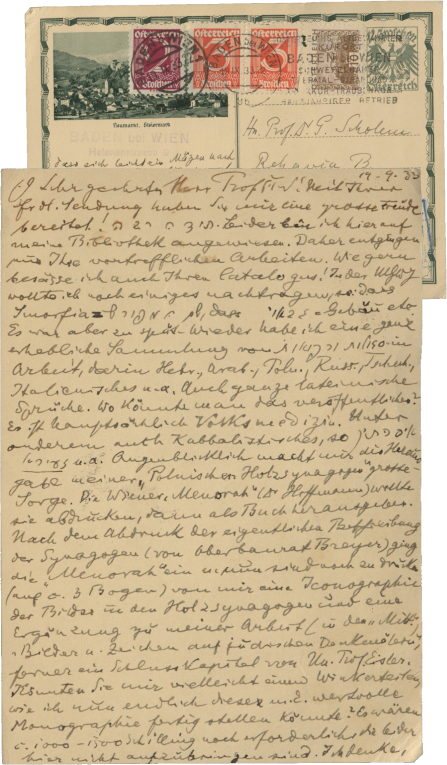 Österreich
Österreich
Österreich
Groschen
BADEN BEI WIEN
Neumarkt, Steiermark
BADEN BEI WIEN
Hn. Prof. Dr. G. Scholem
Rehavia B
19-9.32
Sehr geehrter Herr Prof.! Mit Ihrer
frdl. Sendung haben Sie mir eine grosse Freude
bereitet! Leider bin ich hier auf
meine Bibliothek angewiesen. Daher entgingen
mir Ihre vortrefflichen Arbeiten. Wie gern
besässe ich auch Ihren Catalogus! Zu den
wollte ich noch einiges nachtragen, so dass
Smorfia = dass = Gebäu etc
Es war aber zu spät. Wieder habe ich eine ganz
erhebliche Sammlung von in
Arbeit, darin Hebr., Arab., Poln., Russ., Tschech.,
Italienisches u.a. Auch ganze lateinische
Sprüche. Wo könnte man das veröffentlichen?
Es ist hauptsächlich Volksmedizin. Unter
anderem auch Kabbalistisches, so
u.a. Augenblicklich macht mir die Heraus
gabe meiner "Polnischen Holzsynagogen" grosse
Sorge. Die Wiener "Menorah" (Dr Hoffmann) wollte
sie abdrucken, dann als Buch herausgeben.
Nach dem Abdruck der eigentlichen Beschreibung
der Synagogen (von Oberbaurat Breyer) ging
die "Menorah" ein u. nun sind noch zu drucken
(auf c. 3 Bogen) von mir eine Iconographie
der Bilder in den Holzsynagogen und eine
Ergänzung zu meiner Arbeit (in den "Mitt."
"Bilder u. Zeichen auf jüdischen Denkmälern",
ferner ein Schluss Kapitel von Hn. Prof Eisler.
Könnten Sie mir vielleicht einen Wink erteilen,
wie ich nun endlich diese m. E. wertvolle
Monographie fertig stellen könnte? Es wären
c. 1000 - 1500 Schilling noch erforderlich, die leider
hier nicht aufzubringen sind. Ich denke,